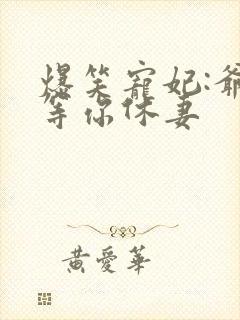 爆笑寵妃:爺
等你休妻
黃愛華